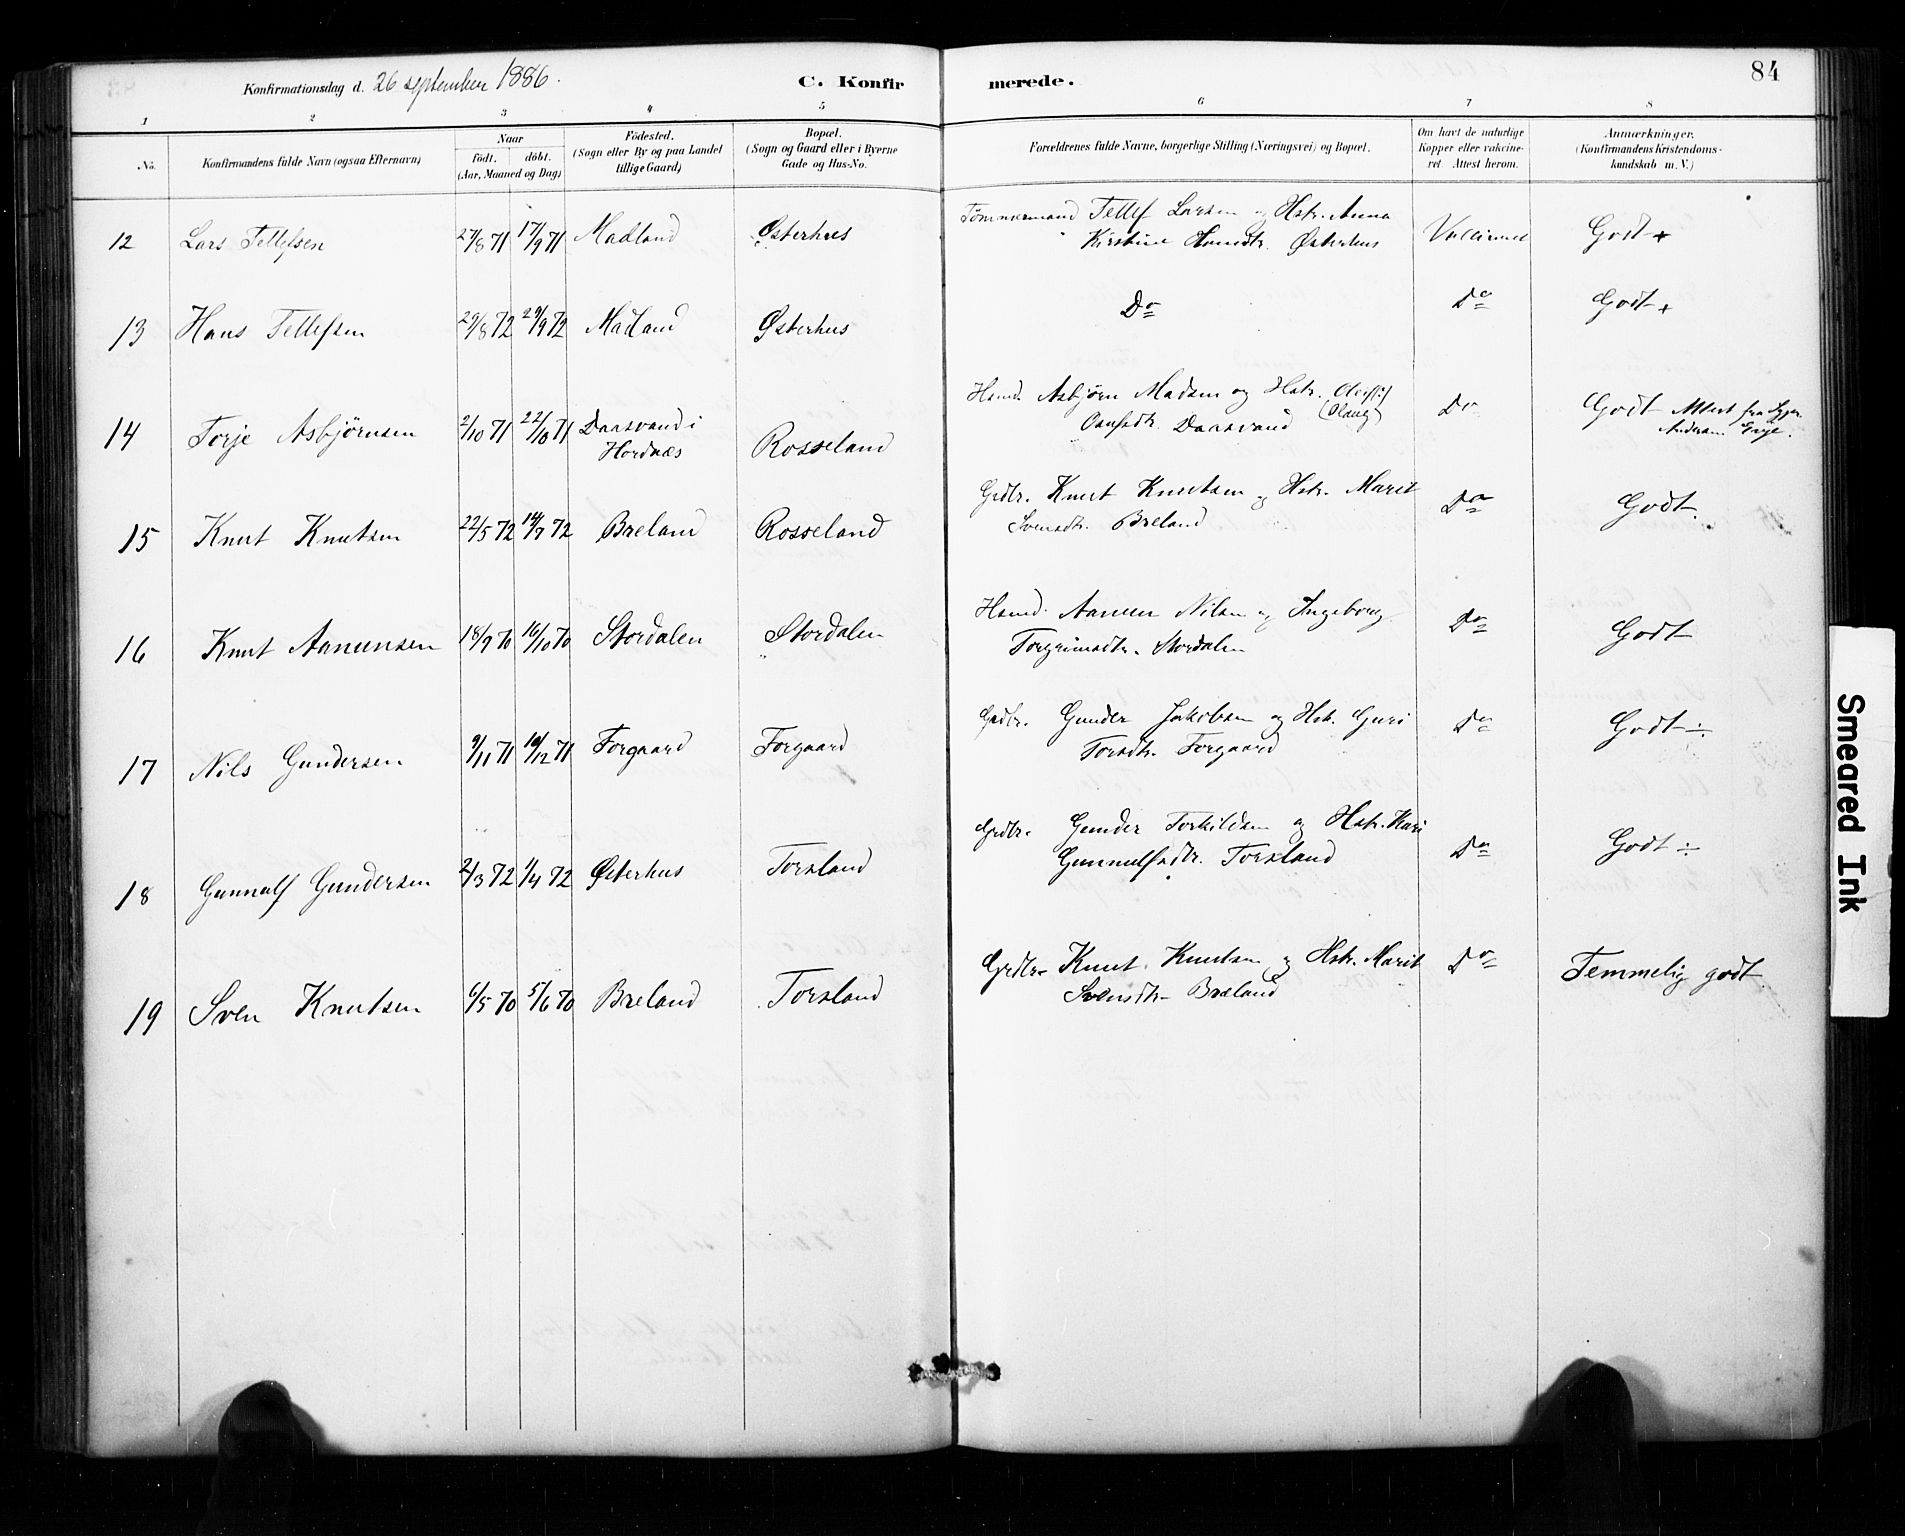 Konfirmationsdag d. 26 september 1886.
C. Konfir
merede.
84
1 2 3 4 5 6 7 8
No.
Konfirmandens fulde Navn (ogsaa Efternavn)
Naar
født. døbt.
(Aar, Maaned og Dag)
Födested.
(Sogn eller By og paa Landet
tillige Gaard)
Bopæl.
(Sogn og Gaard eller i Byerne
Gade og Hus-No.
Forældrenes fulde Navne, borgerlige Stilling (Næringsvei) og Bopæl.
Om havt de naturlige
Kopper eller vakcine-
ret. Attest herom.
Anmærkninger.
(Konfirmandens Kristendoms-
kundskab m. V.)
12 Lars Tellefsen 27/8 71 17/9 71 Madland Østerhus Tømmermand Tellef Larsen og Hstr. Anna Vaccineret Godt +
Kirstine Hansdtr. Østerhus
13 Hans Tellefsen 29/8 72 29/9 72 Madland Østerhus Do Do Godt +
14 Torje Asbjørnsen 2/10 71 22/10 71 Daasvand i Rosseland Hsmd. Asbjørn Madsen og Hstr. Do Godt Attest fra
Hordnæs (Olaug) Daasvand Andersen
15 Knut Knutsen 22/5 72 14/7 72 Breland Rosseland Grdbr. Knut Knutsen og Hstr. Marit Do Godt.
Svensdtr. Breland
16 Knut Aanensen 18/9 70 16/10 70 Stordalen Stordalen Hsmd. Aanen Nilsen og Ingeborg Do Godt
Torgrimsdtr. Stordalen
17 Nils Gundersen 9/11 71 10/12 71 Forgaard Forgaard Grdbr. Gunder Jakobsen og Hstr. Guri Do Godt ÷
Torsdtr. Forgaard
18 Gunnulf Gundersen 2/3 72 1/4 72 Østerhus Torsland Grdbr. Gunder Torkildsen og Hstr. Kari Do Godt ÷
Gunnulfsdtr. Torsland
19 Sven Knutsen 6/5 70 5/6 70 Breland Torsland Grdbr. Knut Knutsen og Hstr. Marit Do Temmelig godt
Svensdtr. Breland
Smeared Ink